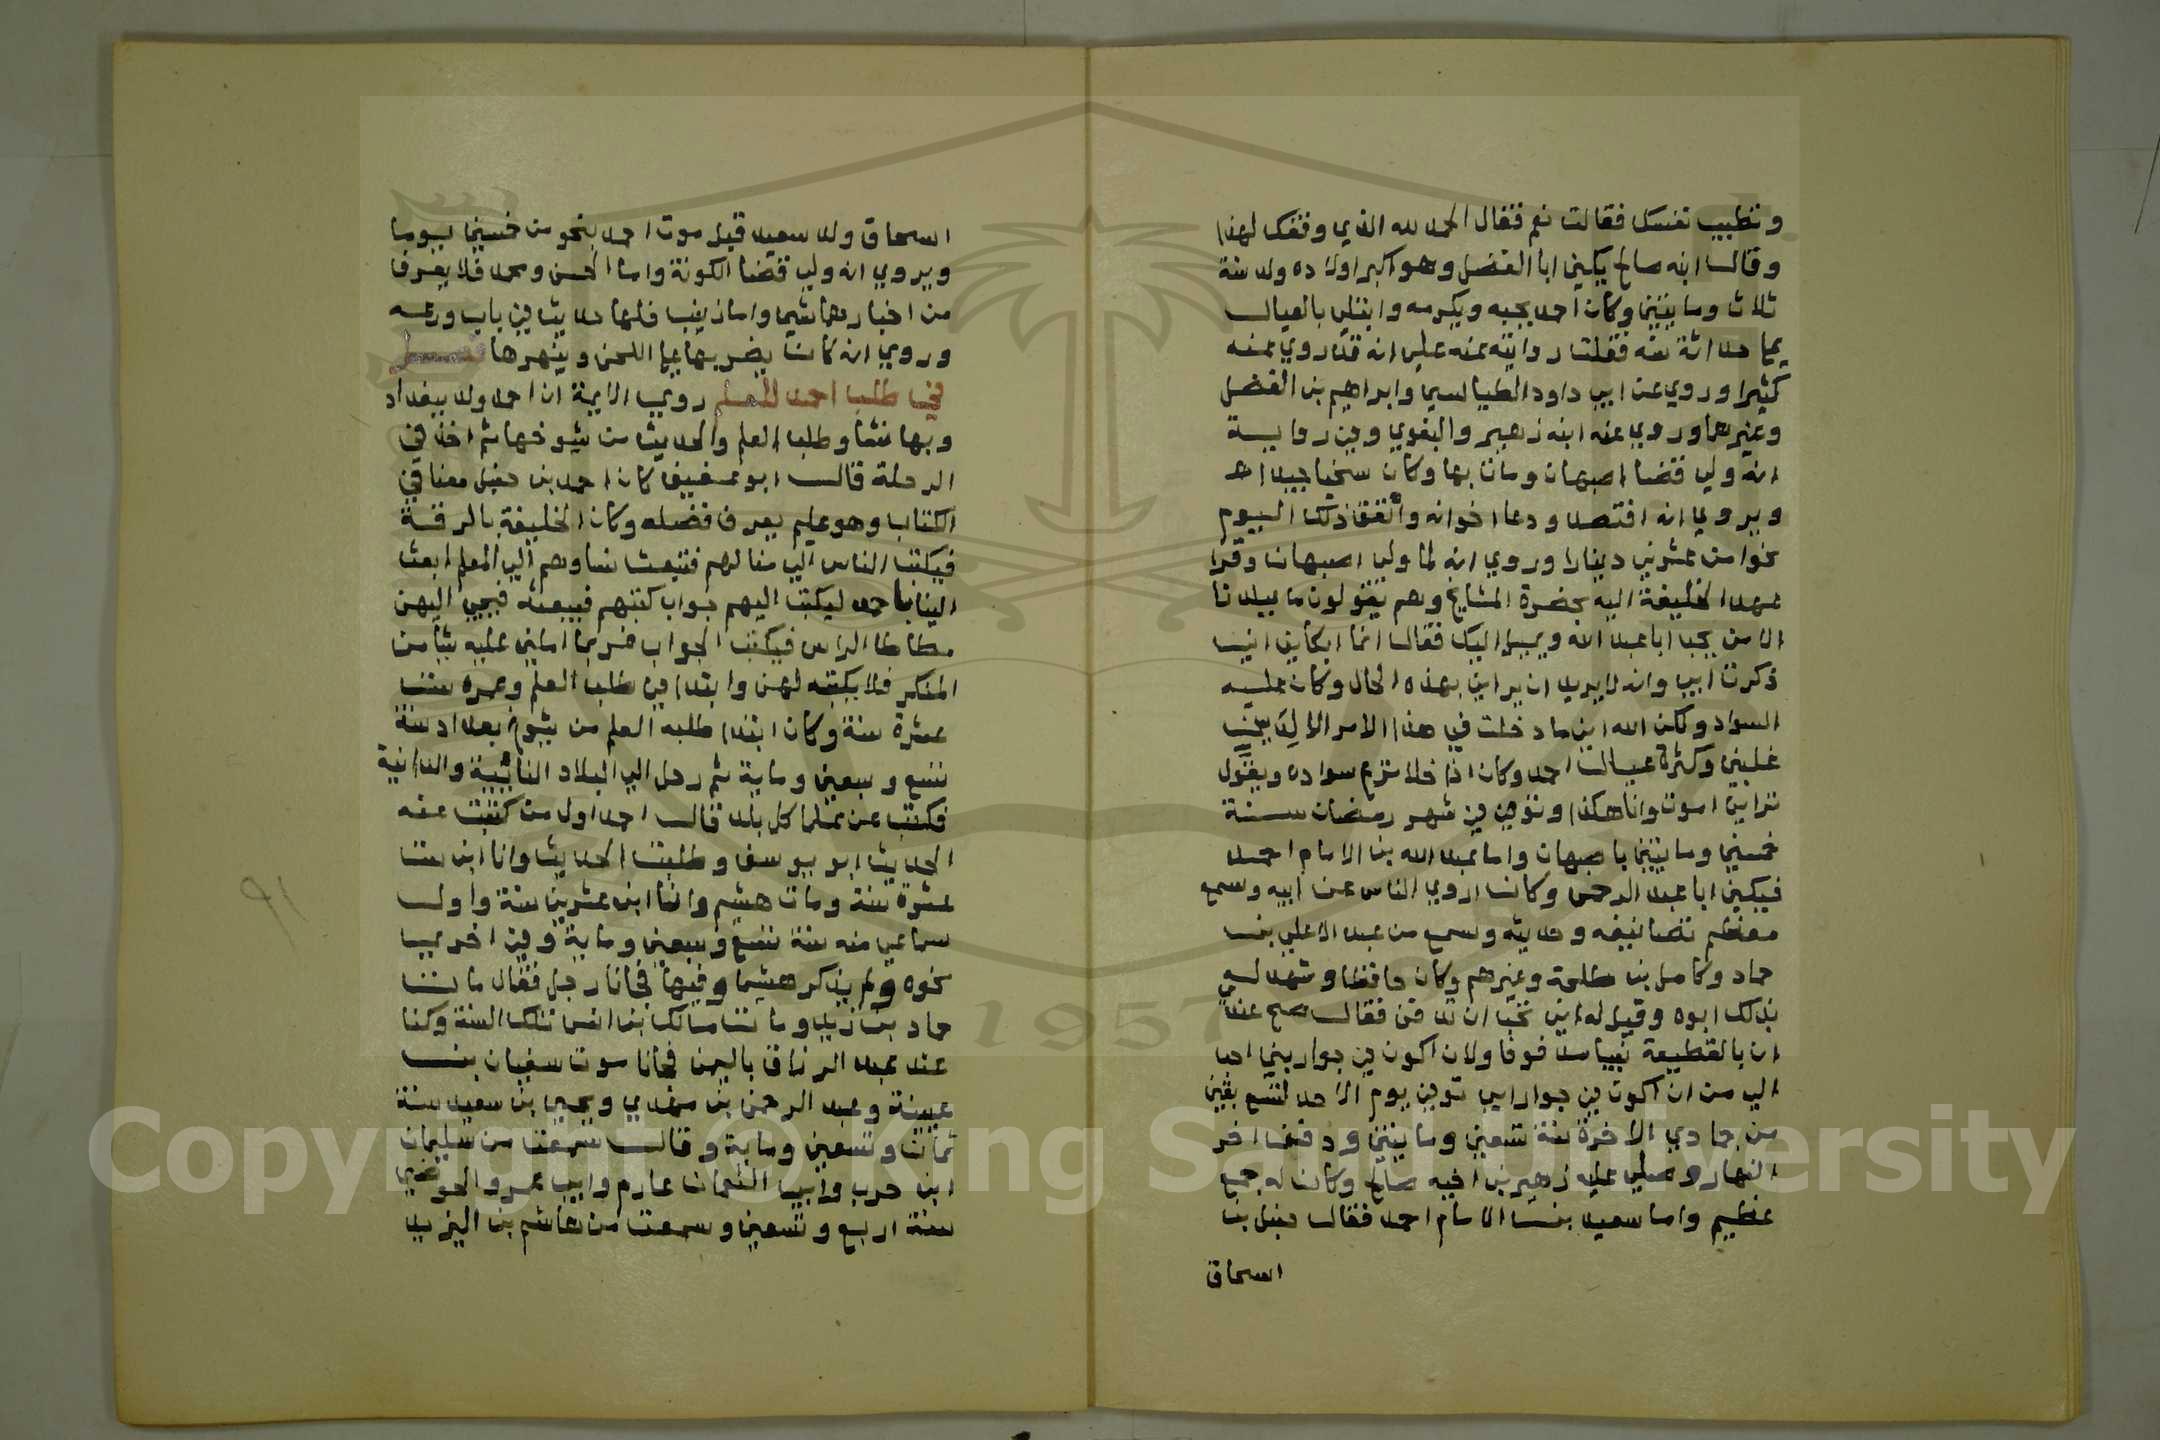 وتطييب نفسك فقالت نعم فقال الحمد لله الذي وفقك لهذا
وقال ابنه صالح يكني ابا الفضل وهو اكبر اولاده ولد سنة
ثلاث ومايتين وكان احمد يحبه ويكرمه وابتلي بالعيال
علي حداثة سنه فقلت روايته عنه علي انه قد روي عنه
كثيرا وروي عن ابي داود الطيالسي وابراهيم بن الفضل
وغيرهما وروي عنه ابنه زهير والبغوي وفي رواية
انه ولي قضا اصبهان ومات بها وكان سخيا جيدا
ويروي انه افتصد ودعا اخوانه وأنفق ذلك اليوم
نحوا من عشرين دينارا وروي انه لما ولي اصبهان وقرا
عهد الخليفة اليه بحضرة المشايخ وهم يقولون ما ببلدنا
الا من يحب ابا عبد الله ويميل اليك فقال انما ابكاني اني
ذكرت ابي وانه لا يريد ان يراني بهذه الحال وكان عليه
السواد ولكن الله اني ما دخلت في هذا الامر الا لدين
غلبني وكثرة عيال احمد وكان اذا خلا نزع سواده ويقول
تراني اموت وانا هكذا وتوفي في شهر رمضان سنة
خمسين ومايتين باصبهان واما عبد الله بن الامام احمد
فيكني ابا عبد الرحمن وكان اروي الناس عن ابيه وسمع
معظم تصانيفه وحديثه وسمع من عبد الاعلي بن
حماد وكامل بن طلحة وغيرهم وكان حافظا وشهد له
بذلك ابوه وقيل له اين تحب ان تدفن فقال صح عندي
ان بالقطيعة نبيا مدفونا ولان اكون في جوار نبي احب
الي من ان اكون في جوار ابي توفي يوم الاحد لتسع بقين
من جمادي الاخرة سنة تسعين ومايتين ودفن اخر
النهار وصلي عليه زهير بن اخيه صالح وكان له جمع
عظيم واما سعيد بن الامام احمد فقال حنبل بن
اسحاق
اسحاق ولد سعيد قبل موت احمد بنحو من خمسين يوما
ويروي انه ولي قضا الكوفة واما الحسن ومحمد فلا يعرف
من اخبارهما شيا واما زينب فلها حديث في باب ورعه
وروي انه كان يضربها علي اللحن وينهرها فصل
في طلب احمد للعلم روي الايمة ان احمد ولد ببغداد
وبها نشأ وطلب العلم والحديث من شيوخها ثم اخذ في
الرحلة قال ابو عفيف كان احمد بن حنبل معنا في
الكتاب وهو غليم يعرف فضله وكان الخليفة بالرقة
فيكتب الناس الي منازلهم فتبعث نساوهم الي المعلم ابعث
الينا باحمد ليكتب اليهم جواب كتبهم فيبعثه فيجي اليهن
مطاطا الراس فيكتب الجواب فربما املين عليه شيأ من
المنكر فلا يكتبه لهن وابتدا في طلب العلم وعمره ست
عشرة سنة وكان ابتدا طلبه العلم من شيوخ بغداد سنة
تسع وسبعين وماية ثم رحل الي البلاد النائيية والدانية
فكتب عن علما كل بلد قال احمد اول من كتبت عنه
الحديث ابو يوسف وطلبت الحديث وانا ابن ست
عشرة سنة ومات هشيم وانا ابن عشرين سنة واول
سماعي منه سنة تسع وسبعين وماية وفي اخري
نحوه ولم يذكر هشيما وفيها فجانا رجل فقال مات
حماد بن زيد ومات مالك بن انس تلك السنة وكنا
عند عبد الرزاق باليمن فجانا موت سفيان بن
عيينة وعبد الرحمن بن مهدي ويحيي بن سعيد سنة
ثمان وتسعين وماية وقال سمعت من سليمان
ابن حرب وابي النعمان عارم وابي عمرو الحوضي
سنة اربع وتسعين وسمعت من هاشم بن اليزيد
1957
Copyright © King Saud University